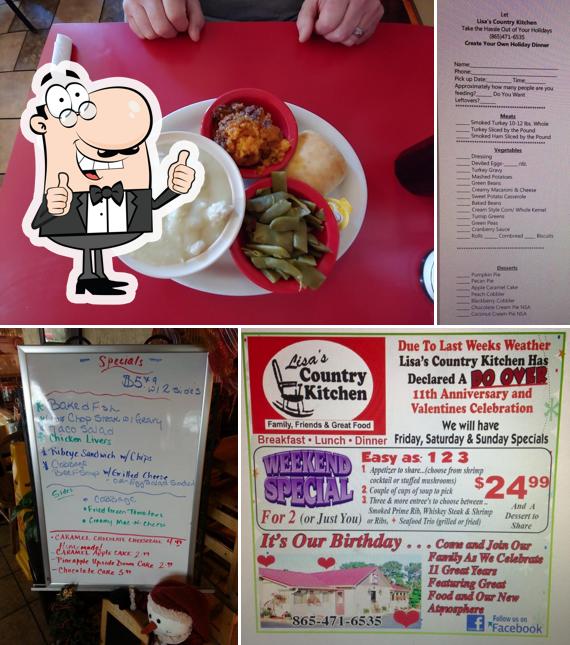 Let
Lisa's Country Kitchen
Take the Hassle Out of Your Holidays
(865)471-6535
Create Your Own Holiday Dinner
Name:
Phone:
Pick up Date: Time:
Approximately how many people are you
feeding? Do You Want
Leftovers?
Meats
Smoked Turkey 10-12 lbs. Whole
Turkey Sliced by the Pound
Smoked Ham Sliced by the Pound
Vegetables
Dressing
Deviled Eggs
Turkey Gravy
Mashed Potatoes
Green Beans
Creamy Macaroni & Cheese
Sweet Potato Casserole
Baked Beans
Cream Style Corn/ Whole Kernel
Turnip Greens
Green Peas
Cranberry Sauce
Rolls Cornbread Biscuits
Desserts
Pumpkin Pie
Pecan Pie
Apple Caramel Cake
Peach Cobbler
Blackberry Cobbler
Chocolate Cream Pie NSA
Coconut Cream Pie NSA
Specials
w/ 2 Sides
Baked Fish
Chop Steak w/ Gravy
Taco Salad
Chicken Livers
Ribeye Sandwich w/ Chips
Cabbage
Beef Soup w/ Grilled Cheese
Sides
Cabbage
Fried Green Tomatoes
Creamy Mac n Cheese
Caramel Chocolate Cheesecake 4.99
Caramel Apple Cake 2.99
Pineapple Upside Down Cake 2.99
Chocolate Cake
Lisa's
Country
Kitchen
Family, Friends & Great Food
Breakfast • Lunch • Dinner
Due To Last Weeks Weather
Lisa's Country Kitchen Has
Declared A DO OVER
11th Anniversary and
Valentines Celebration
We will have
Friday, Saturday & Sunday Specials
WEEKEND
SPECIAL
For 2 (or Just You)
Easy as: 1 2 3
1. Appetizer to share...(choose from shrimp
cocktail or stuffed mushrooms)
2. Couple of cups of soup to pick
3. Three & more entree's to choose between ..
Smoked Prime Rib, Whiskey Steak & Shrimp
or Ribs, + Seafood Trio (grilled or fried)
$24.99
And A
Dessert to
Share
It's Our Birthday . . . .
Come and Join Our
Family As We Celebrate
11 Great Years
Featuring Great
Food and Our New
Atmosphere
865-471-6535
f Follow us on
Facebook